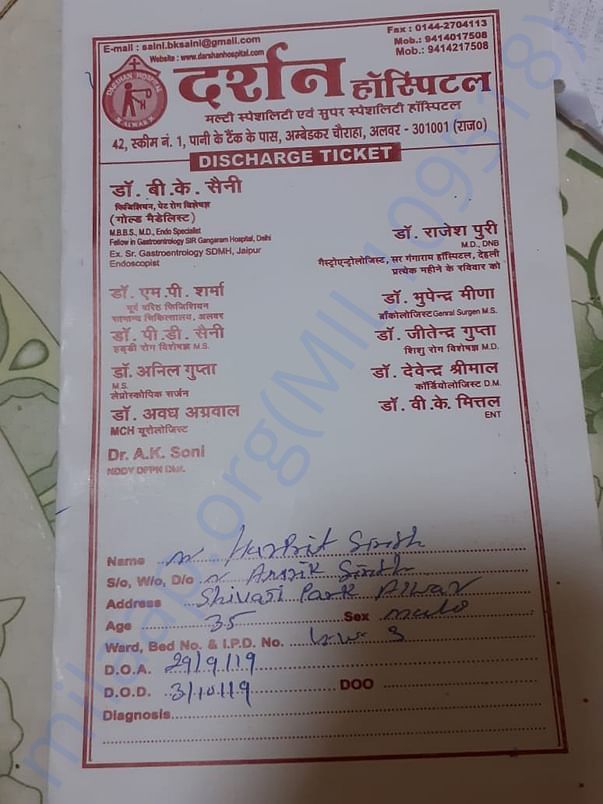 E-mail : saini.bksaini@gmail.com
Website : www.darshanhospital.com
Fax : 0144-2704113
Mob.: 9414017508
Mob.: 9414217508
DARSHAN HOSPITAL
ALWAR
दर्शन हॉस्पिटल
मल्टी स्पेशलिटी एवं सुपर स्पेशलिटी हॉस्पिटल
42, स्कीम नं. 1, पानी के टैंक के पास, अम्बेडकर चौराहा, अलवर - 301001 (राज०)
DISCHARGE TICKET
डॉ. बी.के. सैनी
फिजिशियन, पेट रोग विशेषज्ञ
(गोल्ड मैडेलिस्ट)
M.B.B.S., M.D., Endo Specialist
Fellow in Gastroentrology SIR Gangaram Hospital, Delhi
Ex. Sr. Gastroentrology SDMH, Jaipur
Endoscopist
डॉ. राजेश पुरी
M.D., DNB
गैस्ट्रोएन्ट्रोलोजिस्ट, सर गंगाराम हॉस्पिटल, देहली
प्रत्येक महीने के रविवार को
डॉ. एम.पी. शर्मा
पूर्व वरिष्ठ फिजिशियन
सामान्य चिकित्सालय, अलवर
डॉ. पी.डी. सैनी
हड्डी रोग विशेषज्ञ M.S.
डॉ. अनिल गुप्ता
M.S.
लेप्रोस्कोपिक सर्जन
डॉ. अवध अग्रवाल
MCH यूरोलोजिस्ट
Dr. A.K. Soni
डॉ. भुपेन्द्र मीणा
ऑंकोलोजिस्ट Genral Surgen M.S.
डॉ. जीतेन्द्र गुप्ता
शिशु रोग विशेषज्ञ M.D.
डॉ. देवेन्द्र श्रीमाल
कॉर्डियोलोजिस्ट D.M.
डॉ. वी.के. मित्तल
ENT
Name Harprit Singh
S/o, W/o, D/o Singh
Address Shivaji Park Alwar
Age 35 Sex male
Ward, Bed No. & I.P.D. No.
D.O.A. 29/9/19
D.O.D. 3/10/19 DOO
Diagnosis
milaap.org(MILL109518)